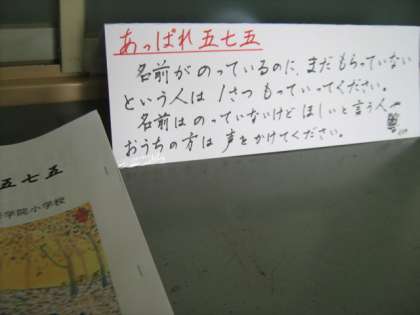 あっぱれ五七五
名前がのっているのに、まだもらっていない
という人は1さつもっていってください。
名前はのっていないけどほしいと言う人
おうちの方は声をかけてください。
五七五
学院小学校